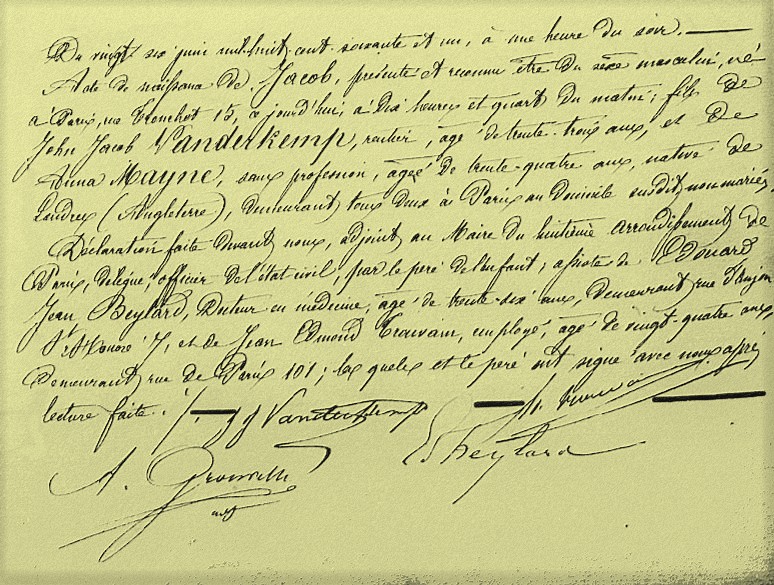 Du vingt six juin mil huit cent soixante et un, à une heure du soir.
Acte de naissance de Jacob, présenté et reconnu être du sexe masculin, né
à Paris, rue Tronchet 15, ce jourd'hui, à Dix heures et quart du matin; fils de
John Jacob Vanderkemp, rentier, agé de trente-trois ans, et de
Anna Mayne, sans profession, agée de trente-quatre ans, native de
Londres (Angleterre), demeurant tous deux à Paris au Domicile susdit, non mariés,
Déclaration faite devant nous, adjoint au Maire du huitième arrondissement de
Paris, délégué, officier de l'état civil, par le père de l'enfant; assisté de Edouard
Jean Beylard, Docteur en médecine, agé de trente-six ans, Demeurant rue d'Anjou
St Honoré 7, et de Jean Edmond, employé, agé de vingt-quatre ans,
Demeurant rue de Paris 101; les quels et le père ont signé avec nous après
lecture faite. JJ Vanderkemp
E Beylard
A.